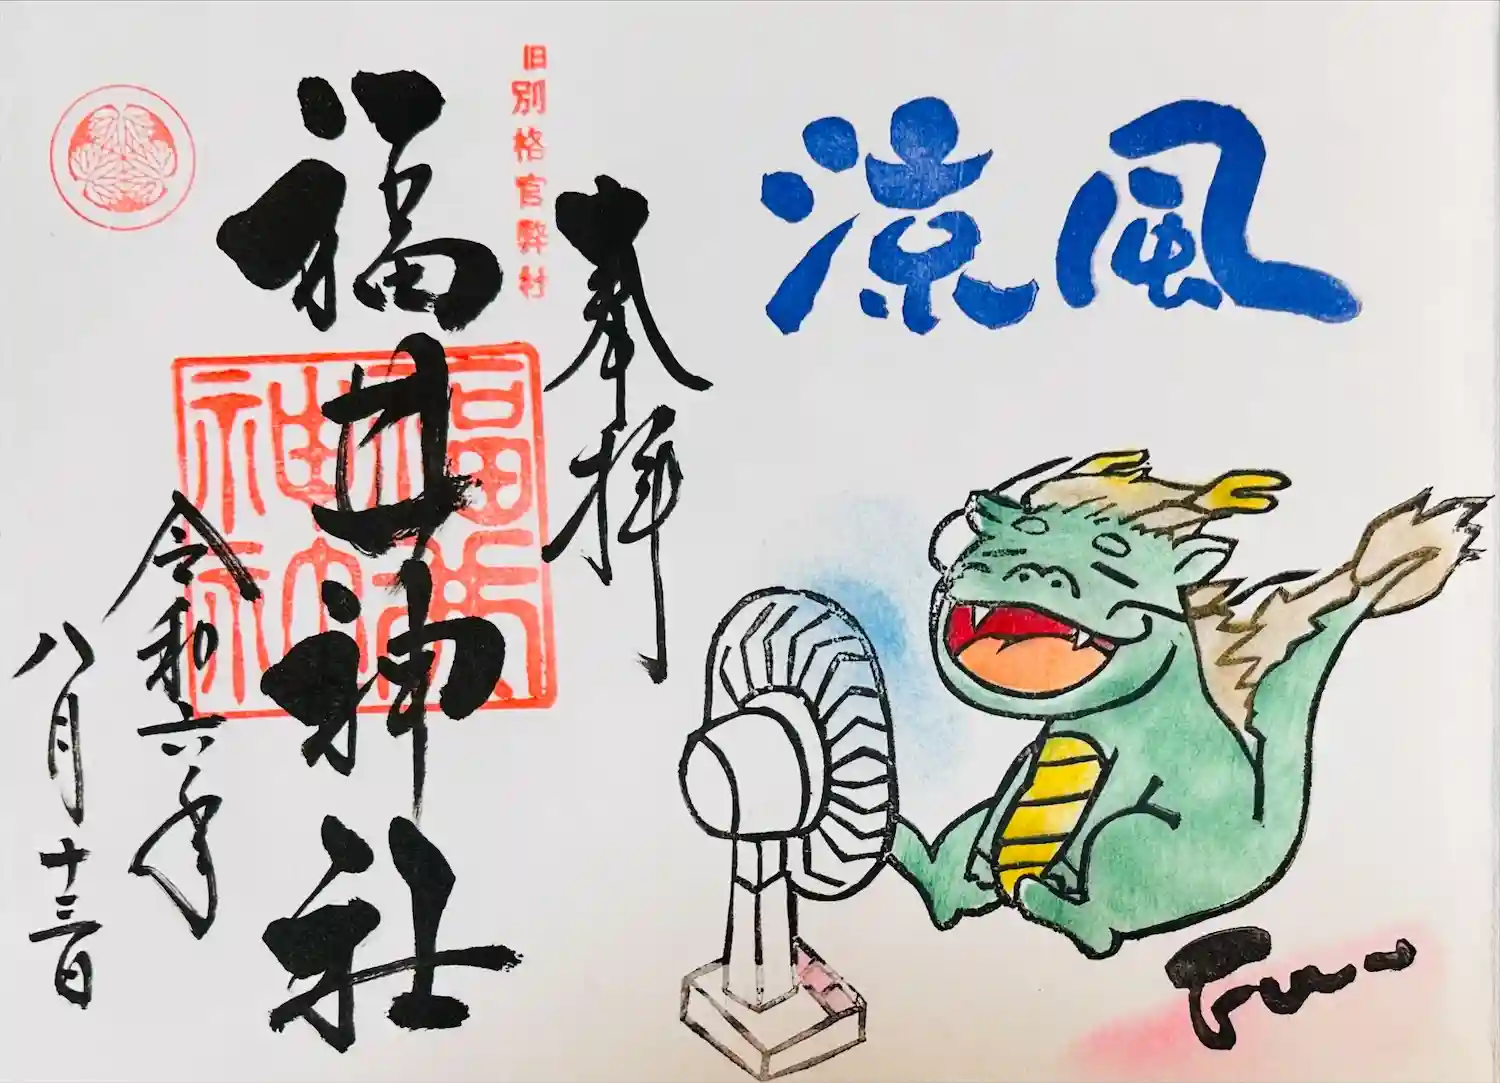 涼風
奉拝
旧別格官幣社
福井神社
令和六年
八月十三日